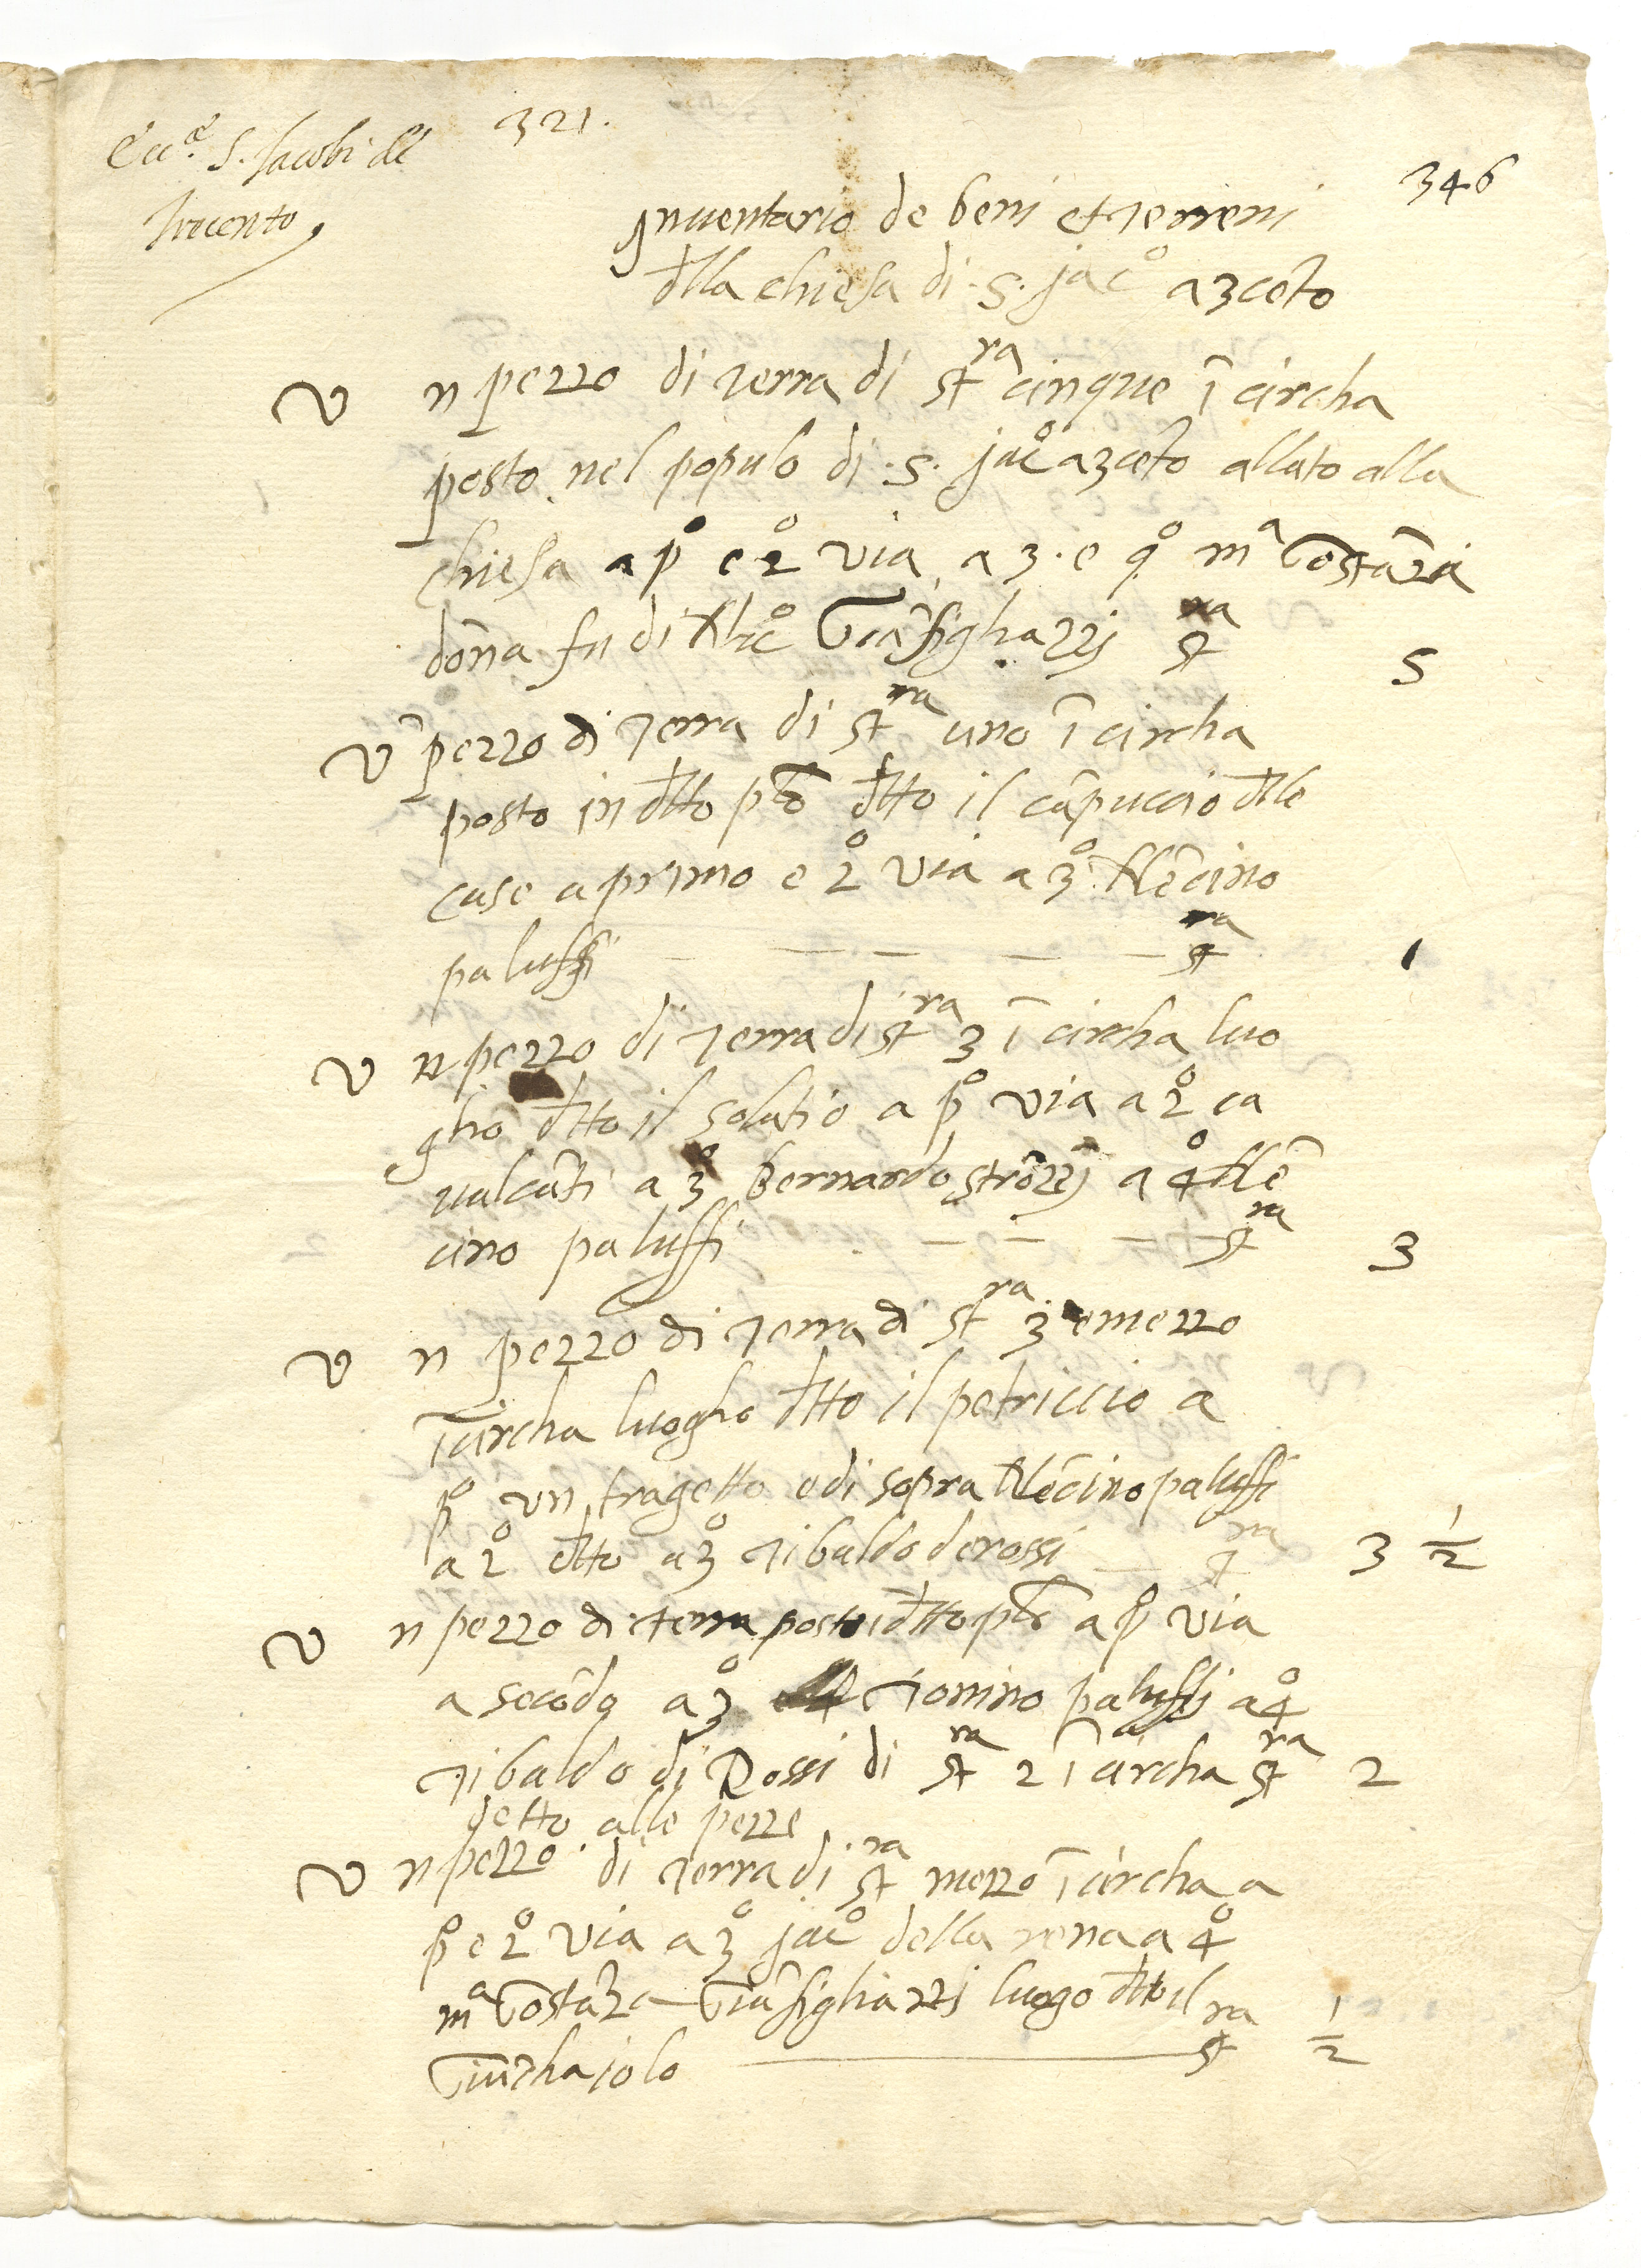 321.
346
Ecc.ᵃ S. Jacobi de
Trecento
Inventario de beni et terreni
dlla chiesa di .S. jac° a 3cēto
Un pezzo di terra di stra cinque ī circha
posto nel populo di .S. jac° a 3cēto allato alla
chiesa a p° e 2° via a 3. e q° mᵃ Costāza
dōna fu di Giāfigliazzj stra 5
Ū pezzo di terra di stra uno ī circha
posto in dtto plō dtto il cāpuccio dlle
case a primo e 2° via a 3°
paluffi stra 1
Un pezzo di terra di stra 3 ī circha luo
gho dtto il solatio a p° via a 2° ca
valcāti a 3° bernardo strōzzj a 4°
cino paluffi stra 3
Un pezzo di terra di stra 3 e mezzo
ī circha luogho dtto il petriccio a
p° un tragetto e di sopra paluffi
a 2° dtto a 3° tibaldo de rossi stra 3 1/2
Un pezzo di terra posto ī dtto plō a p° via
a secōdo a 3° paluffj a 4°
tibaldo di Rossi di stra 2 ī circha stra 2
detto alle pezze
Un pezzo di terra di stra mezzo ī circha a
p° e 2° via a 3° jac° della rena a 4°
mᵃ Costāza Giāfigliazzj luogo dtto il
Giūchaiolo stra 1/2